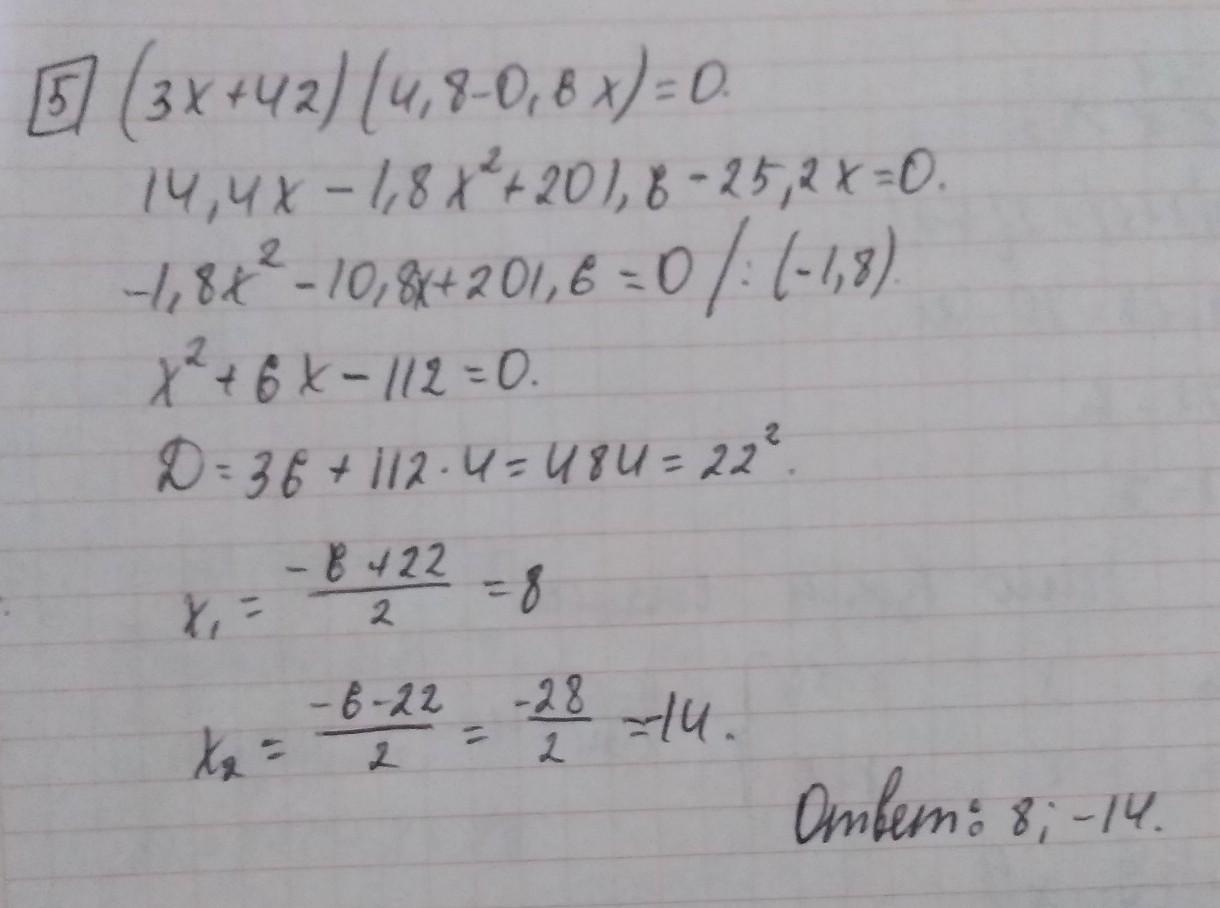 5 (3x+42)(4,8-0,6x)=0.
14,4x-1,8x²+201,6-25,2x=0.
-1,8x²-10,8x+201,6=0 /:(-1,8).
x²+6x-112=0.
D=36+112·4=484=22².
x₁=(-6+22)/2=8
x₂=(-6-22)/2=-28/2=-14.
Ответ: 8; -14.